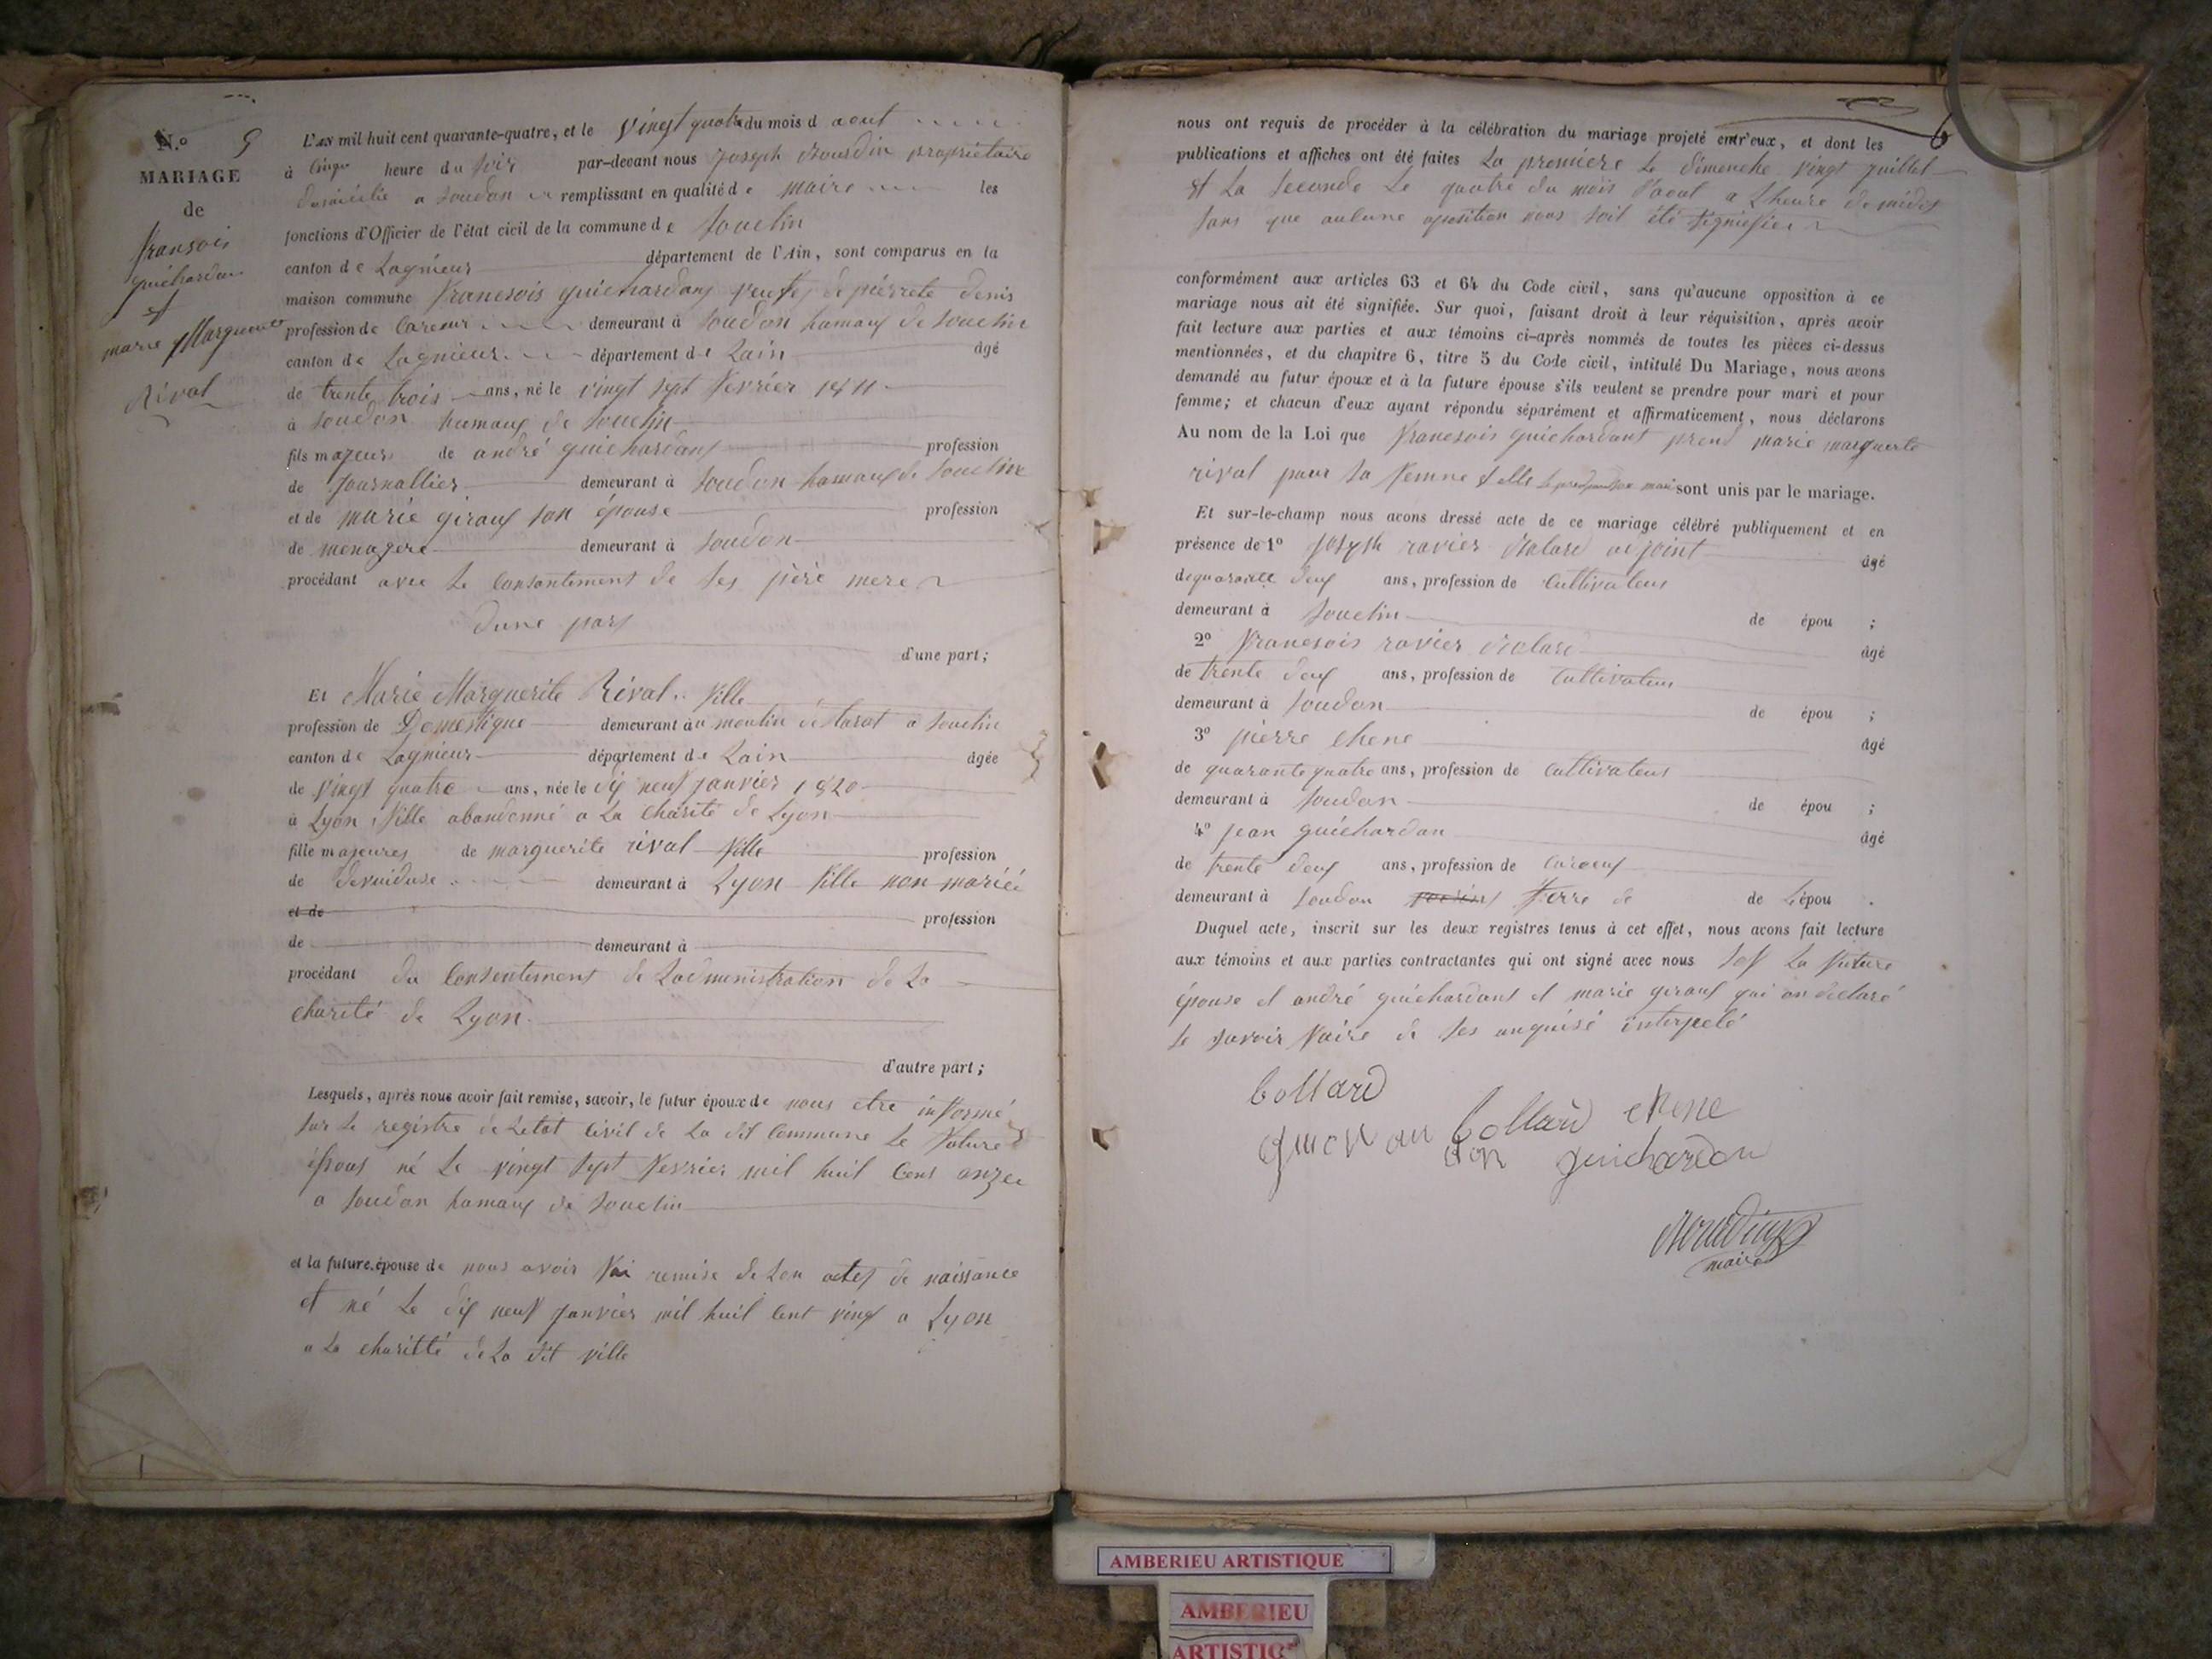 N.o 5
MARIAGE
de
fransois
guichardan
et
marie Marguerite
Rival
L'AN mil huit cent quarante-quatre, et le vingt quatre du mois d aout
à Cinq heure du soir par-devant nous Joseph Bourdin propriétaire
domicilié a soudon remplissant en qualité de maire les
fonctions d'Officier de l'état civil de la commune de souclin
canton de Lagnieur département de l'Ain, sont comparus en la
maison commune francsois guichardans veuf de pierrete denis
profession de Careur demeurant à soudon hamaux de souclin
canton de Lagnieur département de Lain âgé
de trente trois ans, né le vingt sept fevrier 1811
à soudon hamaux de souclin
fils majeurs de andré guichardans profession
de Journallier demeurant à soudon hamaux de souclin
et de marie giraux son épouse profession
de menagere demeurant à soudon
procédant avec le Consantement de ses père mere
dune part
d'une part;
Et Marie Marguerite Rival fille
profession de Domestique demeurant au moulin de tarat a souclin
canton de Lagnieur département de Lain âgée
de vingt quatre ans, née le dix neuf janvier 1820
à Lyon fille abandonné a La Charité de Lyon
fille majeures de marguerite rival fille profession
de devuiduse demeurant à Lyon fille non mariée
et de profession
de demeurant à
procédant du Consentement de Ladministration de La
charité de Lyon
d'autre part;
Lesquels, après nous avoir fait remise, savoir, le futur époux de nous etre informé
sur le registre de Létat Civil de La dit Commune Le future
époux né Le vingt sept fevrier mil huit Cent onze
a soudon hamaux de souclin
et la future épouse de nous avoir fai remise de son actes de naissance
et né Le dix neuf janvier mil huit Cent vingt a Lyon
a La charitté de La dit ville
nous ont requis de procéder à la célébration du mariage projeté entr'eux, et dont les
publications et affiches ont été faites La premiere Le dimenche vingt juillet
et La seconde Le quatre du mois daout a Lheure de midis
sans que aulune oposition nous soit été signiefiée
conformément aux articles 63 et 64 du Code civil, sans qu'aucune opposition à ce
mariage nous ait été signifiée. Sur quoi, faisant droit à leur réquisition, après avoir
fait lecture aux parties et aux témoins ci-après nommés de toutes les pièces ci-dessus
mentionnées, et du chapitre 6, titre 5 du Code civil, intitulé Du Mariage, nous avons
demandé au futur époux et à la future épouse s'ils veulent se prendre pour mari et pour
femme; et chacun d'eux ayant répondu séparément et affirmativement, nous déclarons
Au nom de la Loi que francsois guichardant prend marie marguerte
rival pour sa femme & elle le prend pour son mari sont unis par le mariage.
Et sur-le-champ nous avons dressé acte de ce mariage célébré publiquement et en
présence de 1º Joseph ravier adjoint âgé
de quarante deux ans, profession de Cultivateur
demeurant à souclin de épou ;
2º francsois ravier âgé
de trente deux ans, profession de Cultivateur
demeurant à soudon de épou ;
3º pierre chene âgé
de quarante quatre ans, profession de Cultivateur
demeurant à soudon de épou ;
4º jean guichardan âgé
de trente deux ans, profession de
demeurant à soudon frere de de L'épou .
Duquel acte, inscrit sur les deux registres tenus à cet effet, nous avons fait lecture
aux témoins et aux parties contractantes qui ont signé avec nous sof La future
épouse et andré guichardans et marie giraux qui on declaré
le savoir faire de ses anquisé interpelé
Collard
Collard chene
guichardon
Bourdin
maire
AMBERIEU ARTISTIQUE
AMBERIEU
ARTISTIQ